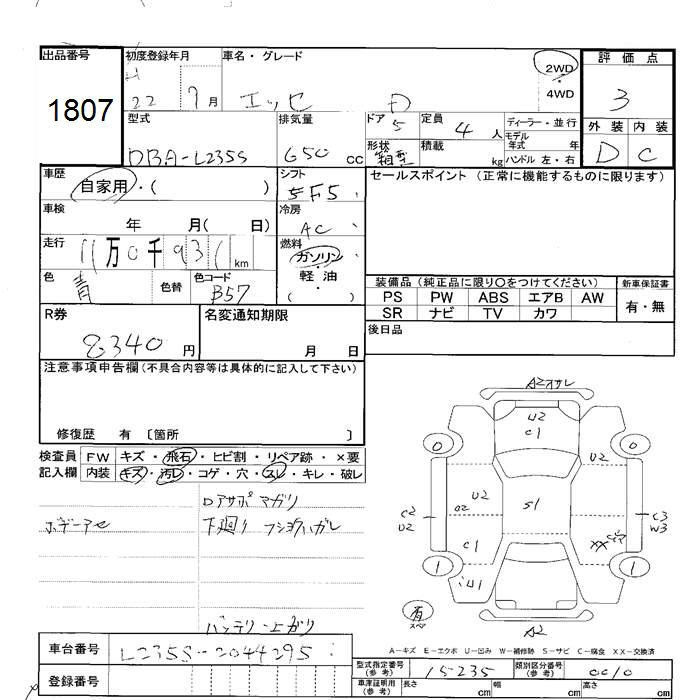 出品番号
1807
初度登録年月
H
22 9 月
車名・グレード
エッセ D
2WD
・
4WD
評価点
3
外装 内装
D C
型式
DBA-L235S
排気量
650 cc
ドア
5
定員
4 人
形状
箱型
積載
kg
ディーラー・並行
モデル
年式 年
ハンドル 左・右
車歴
自家用・( )
シフト
5F5
セールスポイント (正常に機能するものに限ります)
車検
年 月( 日)
冷房
AC
走行
11万0千931 km
燃料
ガソリン
・
軽・油
・
( )
色
青
色替
色コード
B57
装備品 (純正品に限り○をつけてください)
PS PW ABS エアB AW
SR ナビ TV カワ
新車保証書
有・無
後日品
R券
8340 円
名変通知期限
月 日
注意事項申告欄 (不具合内容等は具体的に記入して下さい)
修復歴 有 〔箇所 〕
検査員
記入欄
FW キズ・飛石・ヒビ割・リペア跡・×要
内装 キズ・汚レ・コゲ・穴・スレ・キレ・破レ
ロアサポ マガリ
ボデーアセ
下廻り フショクハガレ
バッテリー上がり
A2オサレ
U2
C1
0 0
U2
U2
A2
S1
C2
U2
C3
W3
C1
XX
1 1
U1
有
スペア
A2
A-キズ E-エクボ U-凹み W-補修跡 S-サビ C-腐食 XX-交換済
車台番号
L235S-2044295
登録番号
型式指定番号
(参考)
15235
類別区分番号
(参考)
0010
車庫証明用
(参考)
長さ cm 幅 cm 高さ cm